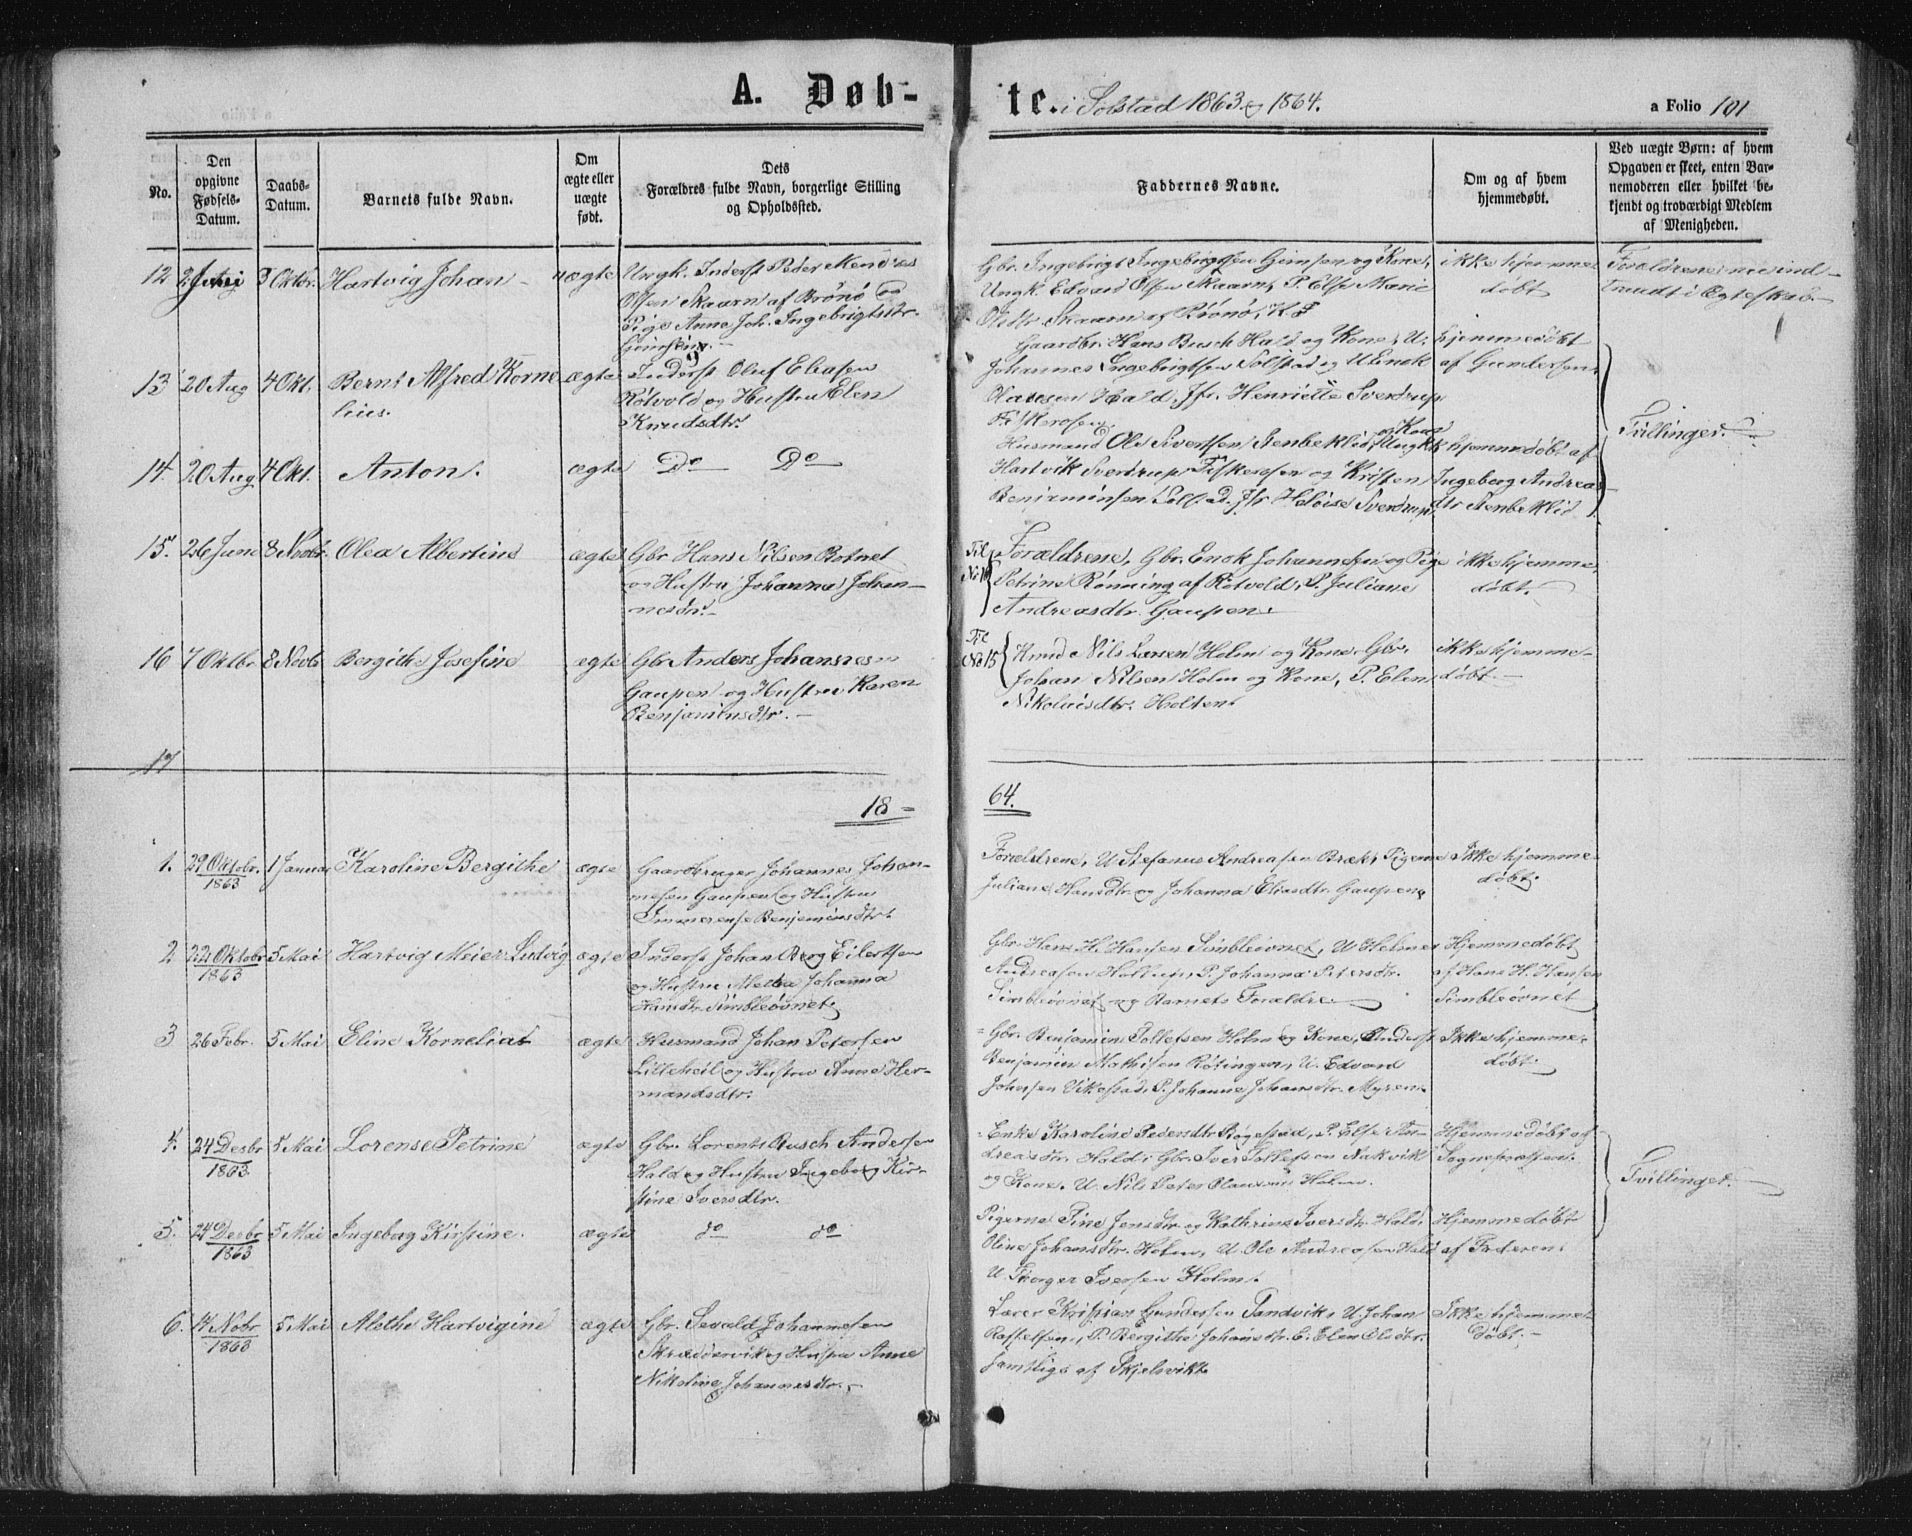 A. Døb-
te. i Solstad 1863 og 1864.
a Folio 101
No.
Den
opgivne
Fødsels-
Datum.
Daabs-
Datum.
Barnets fulde Navn.
Om
ægte eller
uægte
født.
Dets
Forældres fulde Navn, borgerlige Stilling
og Opholdssted.
Faddernes Navne.
Om og af hvem
hjemmedøbt.
Ved uægte Børn: af hvem
Opgaven er skeet, enten Bar-
nemoderen eller hvilket be-
kjendt og troværdigt Medlem
af Menigheden.
12 Juni 3 Oktbr. Hartvig Johan uægte
Ungk. Inderst Peder
Olsen Skaarn af Brønø og
Pige Anne Joh. Ingebrigtsdtr.
Gbr. Ingebrigt Ingebrigtsen og Kone,
Ungk. Edvard Olsen Skaarn, P. Else Marie
Olsdtr Skaarn af Brønø,
ikke hjemme
døbt
Forældrene ei ind-
traadt i Ægteskab.
13 20 Aug 4 Okt. Bernt Alfred Korne
lius.
ægte
Inderst Oluf Eliasen
Røtvold og Hustru Elen
Knudsdtr.
Gaardbr. Hans Busch Hald og Kone, U.
Johannes Ingebrigtsen Solstad og U Enok
Hald, Jfr. Henriette Sverdrup
Fiskerosen
hjemmedøbt
af Gundersen
14. 20 Aug 4 Okt. Anton. ægte Do Do
Husmand Ole Sivertsen Stenbeklid og Kone, Ungk
Hartvik Sverdrup Fiskerosen og Kristen
Benjaminsen Jfr Heloise Sverdrup
hjemmedøbt af
Ingeborg Andreas
dtr Stenbeklid
Tvillinger.
15. 26 Juni 8 Novbr. Olea Albertine ægte
Gbr Hans Nilsen Botnet
og Hustru Johanna Johan-
nesdtr.
Til
No 16
Forældrene, Gbr. Enok Johannesen og Pige
Petrine Rønning af Røtvold, P. Juliane
Andreasdtr. Gaupen.
ikke hjemme
døbt.
16 7 Oktbr 8 Novbr Bergithe Josefine ægte
Gbr Anders Johannesen
Gaupen og Hustru Karen
Benjaminsdtr.
Til
No 15
Knud Nils Larsen Holm og Kone, Gbr.
Johan Nilsen Holm og Kone, P. Elen
Nikolaisdtr. Holten.
ikke hjemme-
døbt.
17
18 =
64.
1. 29 Oktobr. 1863 1 Januar Karoline Bergithe ægte
Gaardbruger Johannes Johan-
nesen Gaupen og Hustru
Immerense Benjaminsdtr.
Forældrene, U Stefanus Andreasen Bræk, Pigerne
Juliane Hansdtr. og Johanna Eliasdtr. Gaupen.
Ikke hjemme-
døbt.
2 22 Oktobr 1863 5 Mai Hartvig Meier Ludvig ægte
Inderst Johan Berg Eilertsen
og Hustru Alethe Johanna
Hansdtr. Simblesøvnet
Gbr. Hans H. Hansen Simblesøvnet, U Helmer
Andreasen, P. Johanna Petersdtr.
Simblesøvnet og Barnets Forældre.
Hjemmedøbt
af Hans H. Hansen
Simblesøvnet
3 26 Febr. 5 Mai Eline Kornelia ægte
Husmand Johan Petersen
Lilleheil og Hustru Anne Her-
mandsdtr.
Gbr. Benjamin Tollefsen Holm og Kone, Inderst
Benjamin Mathisen Røtingen, U. Edvard
Johnsen Vikestad, P. Johanne Johansdtr. Myren.
Ikke hjemme-
døbt.
4. 24 Desbr 1863 5 Mai Lorense Petrine ægte
Gbr. Lorents Busch Andersen
Hald og Hustru Ingeborg Kir-
stine Iversdtr.
Enke Karoline Pedersdtr, P. Else An-
dreasdtr. Hald, Gbr. Iver Tollefsen Nakvik
og Kone, U. Nils Peter Holm.
Hjemmedøbt af
Sognepresten.
Tvillinger.
5. 24 Desbr 1863 5 Mai Ingeborg Kirstine. ægte do do
Pigerne Sine Jensdtr og Kathrine Iversdtr Hald,
Oline Johansdtr. Holm, U. Ole Andreasen Hald
U. Torger Iversen Holm.
Hjemmedøbt
af Faderen.
6. 14 Nobr 1863 5 Mai Alethe Hartvigine ægte
Gbr. Sevald Johannesen
Skreddervik og Hustru Anne
Nikoline Johannesdtr.
Lærer Kristian Gundersen Sandvik, U. Johan
P Bergithe Johansdtr. Elen Olsdtr.
samtlige af Skjelsvik
Ikke hjemme-
døbt.